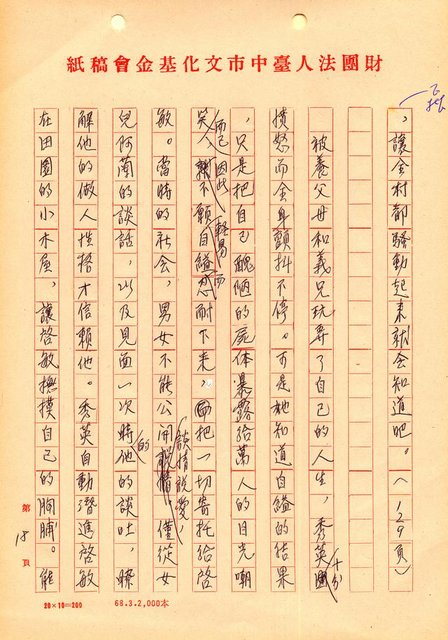 財團法人臺中市文化基金會稿紙
，讓全村都騷動起來就會知道吧。（129頁）
被養父母和義兄玩弄了自己的人生，秀英十分
憤怒而全身顫抖不停。可是她知道自縊的結果
，只是把自己醜陋的屍体暴露給萬人的目光嘲
笑而已，因此不願輕易而自縊忍耐下來，而把一切寄托給啓
敏。當時的社會，男女不能公開談情說愛，僅從女
兒阿蘭的談話，以及見面一次時他的談吐，瞭
解他的做人性格才信賴他。秀英自動潛進啓敏
在田園的小木屋，讓啓敏撫摸自己的胸脯。能
第18頁
20×10=200
68.3.2,000本